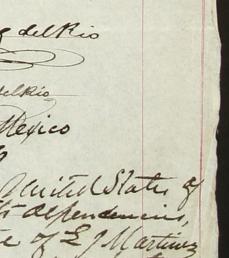 del Rio
del Rio
Mexico
United States of
its dependencies,
of E J Martinez